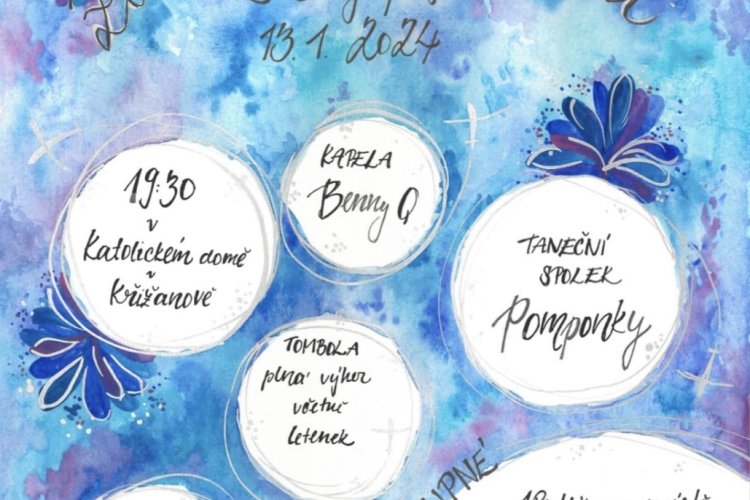 13.1. 2024
19:30
v
Katolickém domě
v
Křižanově
KAPELA
Benny Q
TANEČNÍ
SPOLEK
Pomponky
TOMBOLA
plná výher
včetně
letenek